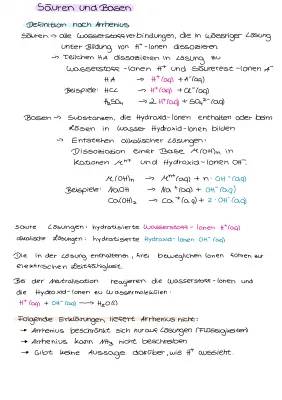 Säuren und Basen
Definition nach Arrhenius
Säuren → alle Wasserstoffverbindungen, die in wässriger Lösung
unter Bildung von H⁺-Ionen dissoziieren
→ Teilchen HA dissoziieren in Lösung zu
Wasserstoff-Ionen H⁺ und Säurerest-Ionen A⁻
HA → H⁺(aq) + A⁻(aq)
Beispiele: HCL → H⁺(aq) + CL⁻(aq)
H₂SO₄ → 2 H⁺(aq) + SO₄²⁻(aq)
Basen → Substanzen, die Hydroxid-Ionen enthalten oder beim
Lösen in Wasser Hydroxid-Ionen bilden
→ Entstehen alkalischer Lösungen:
Dissoziation einer Base M(OH)ₙ in
Kationen Mⁿ⁺ und Hydroxid-Ionen OH⁻
M(OH)ₙ → Mⁿ⁺(aq) + n · OH⁻(aq)
Beispiele: NaOH → Na⁺(aq) + OH⁻(aq)
Ca(OH)₂ → Ca⁺(aq) + 2 · OH⁻(aq)
saure Lösungen: hydratisierte Wasserstoff-Ionen H⁺(aq)
alkalische Lösungen: hydratisierte Hydroxid-Ionen OH⁻(aq)
Die in der Lösung enthaltenen, frei beweglichen Ionen führen zur
elektrischen Leitfähigkeit.
Bei der Neutralisation reagieren die Wasserstoff-Ionen und
die Hydroxid-Ionen zu Wassermolekülen:
H⁺(aq) + OH⁻(aq) → H₂O(l)
Folgende Erklärungen liefert Arrhenius nicht:
→ Arrhenius beschränkt sich nur auf Lösungen (Flüssigkeiten)
→ Arrhenius kann NH₃ nicht beschreiben
→ Gibt keine Aussage darüber, wie H⁺ aussieht